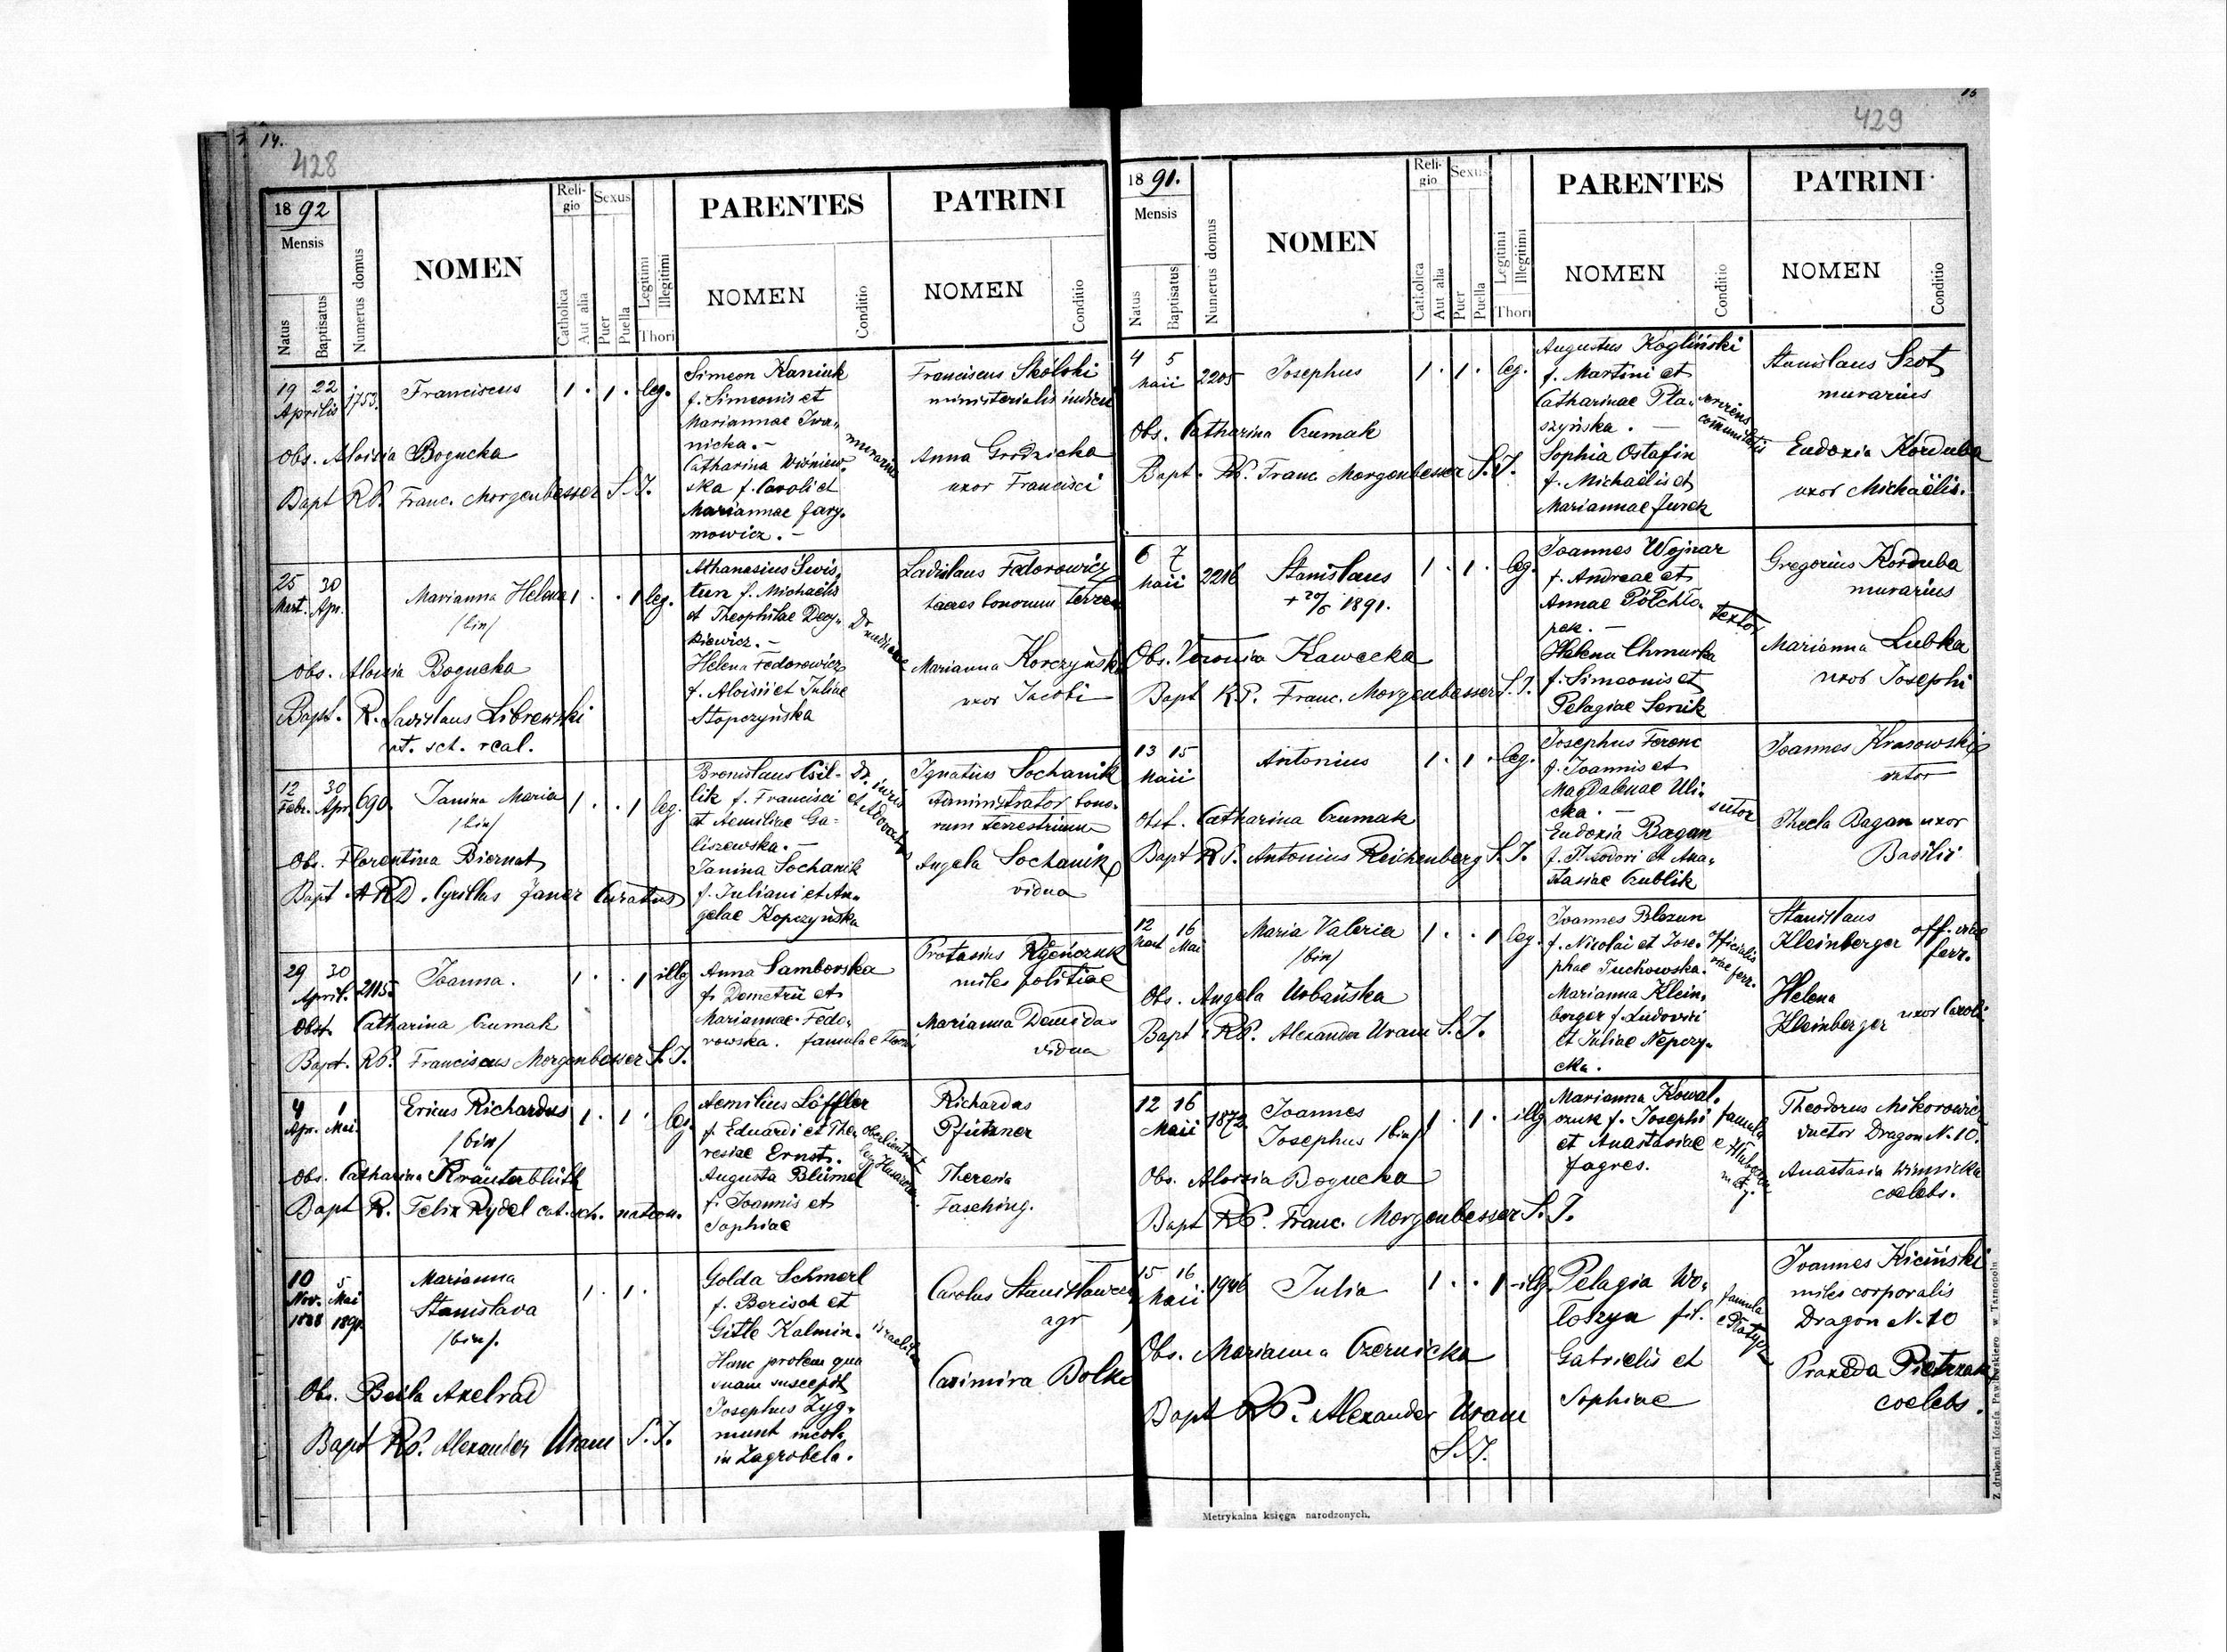 14.
428
1892
Mensis
Natus
Baptisatus
Numerus domus
NOMEN
Religio
Catholica
Aut alia
Sexus
Puer
Puella
Legitimi
Illegitimi
Thori
PARENTES
NOMEN
Conditio
PATRINI
NOMEN
Conditio
19 22
Aprilis
1753.
Franciscus
1. 1. leg.
Simeon Kaniuk
f. Simeonis et
Mariannae Iwa-
nicka.-
Catharina Wiśniew-
ska f. Caroli et
Mariannae Jary-
mowicz.-
murarius
Franciscus Skólski
ministerialis
Anna Grodzicka
uxor Francisci
Obs. Aloisia Bogucka
Bapt RP. Franc. Morgenbesser S.J.
25 30
Mart. Apr.
Marianna Helena
/bin/
1. . 1 leg.
Athanasius Swis-
tun f. Michaelis
et Theophilae Decy-
kiewicz.-
Helena Fedorowicz
f. Aloisii et Juliae
Stopczyńska
Dr
Ladislaus Fedorowicz
bonorum
Marianna Korczyńska
uxor Jacobi
Obs. Aloisia Bogucka
Bapt. R. Ladislaus Librewski
cat. sch. real.
12 30
Febr. Apr
690.
Janina Maria
/bin/
1. . 1 leg.
Bronislaus Csil-
lik f. Francisci
et Aemiliae Ga-
liszewska.-
Janina Sochanik
f. Juliani et An-
gelae Kopczyńska
Dr. iuris
et Advocatus
Ignatius Sochanik
Administrator bono-
rum terrestrium
Angela Sochanik
vidua
Obs. Florentina Biernat
Bapt. ARD. Cyrillus Janer Curatus
29 30
April.
2115
Joanna.
1. . 1 illg
Anna Samborska
f. Demetrii et
Mariannae Fedo-
rowska. famula e
Protasius
miles politiae
Marianna Demidas
vidua
Obst. Catharina Czumak
Bapt. RP. Franciscus Morgenbesser S.J.
4 1
Apr. Mai.
Ericus Richardus
/bin/
1. 1. leg.
Aemilius Löffler
f. Eduardi et The-
resiae Ernst.
Augusta Blümel
f. Joannis et
Sophiae
Oberlieutnant
Richardus
Pfützner
Theresia
Fasching.
Obs. Catharina Kräuterblüth
Bapt R. Felix Rydel cat. sch. nation.
10 5
Nov. Mai
1888 1891
Marianna
Stanislava
/bin/.
1. 1.
Golda Schmerl
f. Berisch et
Gitle Kalmin.
Israelita
Hanc prolem qua
suam suscepit
Josephus Zyg-
munt incola
in Zagrobela.
Carolus
agr
Casimira Bolke
Obs. Beila Axelrad
Bapt RP. Alexander Uram S.J.
429
1891.
Mensis
Natus
Baptisatus
Numerus domus
NOMEN
Religio
Catholica
Aut alia
Sexus
Puer
Puella
Legitimi
Illegitimi
Thori
PARENTES
NOMEN
Conditio
PATRINI
NOMEN
Conditio
4 5
Maii
2205
Josephus
1. 1. leg.
Augustus Kogliński
f. Martini et
Catharinae Pta-
szyńska.-
Sophia Ostafin
f. Michaelis et
Mariannae Jurek
serviens
comunitatis
Stanislaus Szot
murarius
Eudoxia Korduba
uxor Michaëlis.
Obs. Catharina Czumak
Bapt. RP. Franc. Morgenbesser S.J.
6 7
Maii
2216
Stanislaus
+ 20/5 1891.
1. 1. leg.
Joannes Wojnar
f. Andreae et
Annae Półchło-
pek.-
Helena Chmurka
f. Simeonis et
Pelagiae Senik
textor
Gregorius Korduba
murarius
Marianna Lubka
uxor Josephi
Obs. Veronica Kawecka
Bapt RP. Franc. Morgenbesser S.J.
13 15
Maii
Antonius
1. 1. leg.
Josephus Ferenc
f. Joannis et
Magdalenae Uli-
cka.-
Eudoxia Bagan
f. Theodori et Ana-
stasiae Czublik
sutor
Joannes Krasowski
sutor
Thecla Bagan uxor
Basilii
Obst. Catharina Czumak
Bapt RP. Antonius Reichenberg S.J.
12 16
Mart Mai
Maria Valeria
/bin/
1. . 1 leg.
Joannes Blozun
f. Nicolai et Jose-
phae Tuchowska.
Marianna Klein-
berger f. Ludovici
et Juliae Nepozy-
cka.
Officialis
viae ferr.
Stanislaus
Kleinberger off. viae
ferr.
Helena
Kleinberger uxor Caroli
Obs. Angela Urbańska
Bapt. RP. Alexander Uram S.J.
12 16
Maii
1872
Joannes
Josephus /bin/
1. 1. illg
Marianna Kowal-
czuk f. Josephi
et Anastasiae
Jagres.
famula
Theodorus Mikorowicz
ductor Dragon N. 10.
Anastasia Winnicka
coelebs.
Obs. Aloisia Bogucka
Bapt RP. Franc. Morgenbesser S.J.
15 16
Maii
1946
Julia
1. . 1 illg.
Pelagia Wo-
łoszyn fil.
Gabrielis et
Sophiae
famula
Joannes Kiciński
miles corporalis
Dragon N. 10
Praxeda Pietrzak
coelebs.
Obs. Marianna Czernicka
Bapt RP. Alexander Uram
S.J.
Metrykalna księga narodzonych.
Z drukarni Józefa Pawłowskiego w Tarnopolu